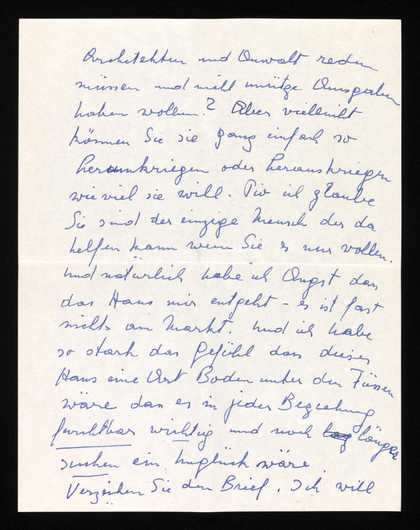 Architekten und Anwalt reden
müssen und nicht unnütze Ausgaben
haben wollen? Aber vielleicht
können Sie sie ganz einfach so
herumkriegen oder herauskriegen
wie viel sie will. Tiv ich glaube
Sie sind der einzige Mensch der da
helfen kann wenn Sie es nur wollen.
Und natürlich habe ich Angst dass
das Haus mir entgeht – es ist fast
nichts am Markt. Und ich habe
so stark das Gefühl dass dieses
Haus eine Art Boden unter den Füssen
wäre dass es in jeder Beziehung
furchtbar wichtig und noch länger
suchen ein Unglück wäre.
Verzeihen Sie den Brief. Ich will